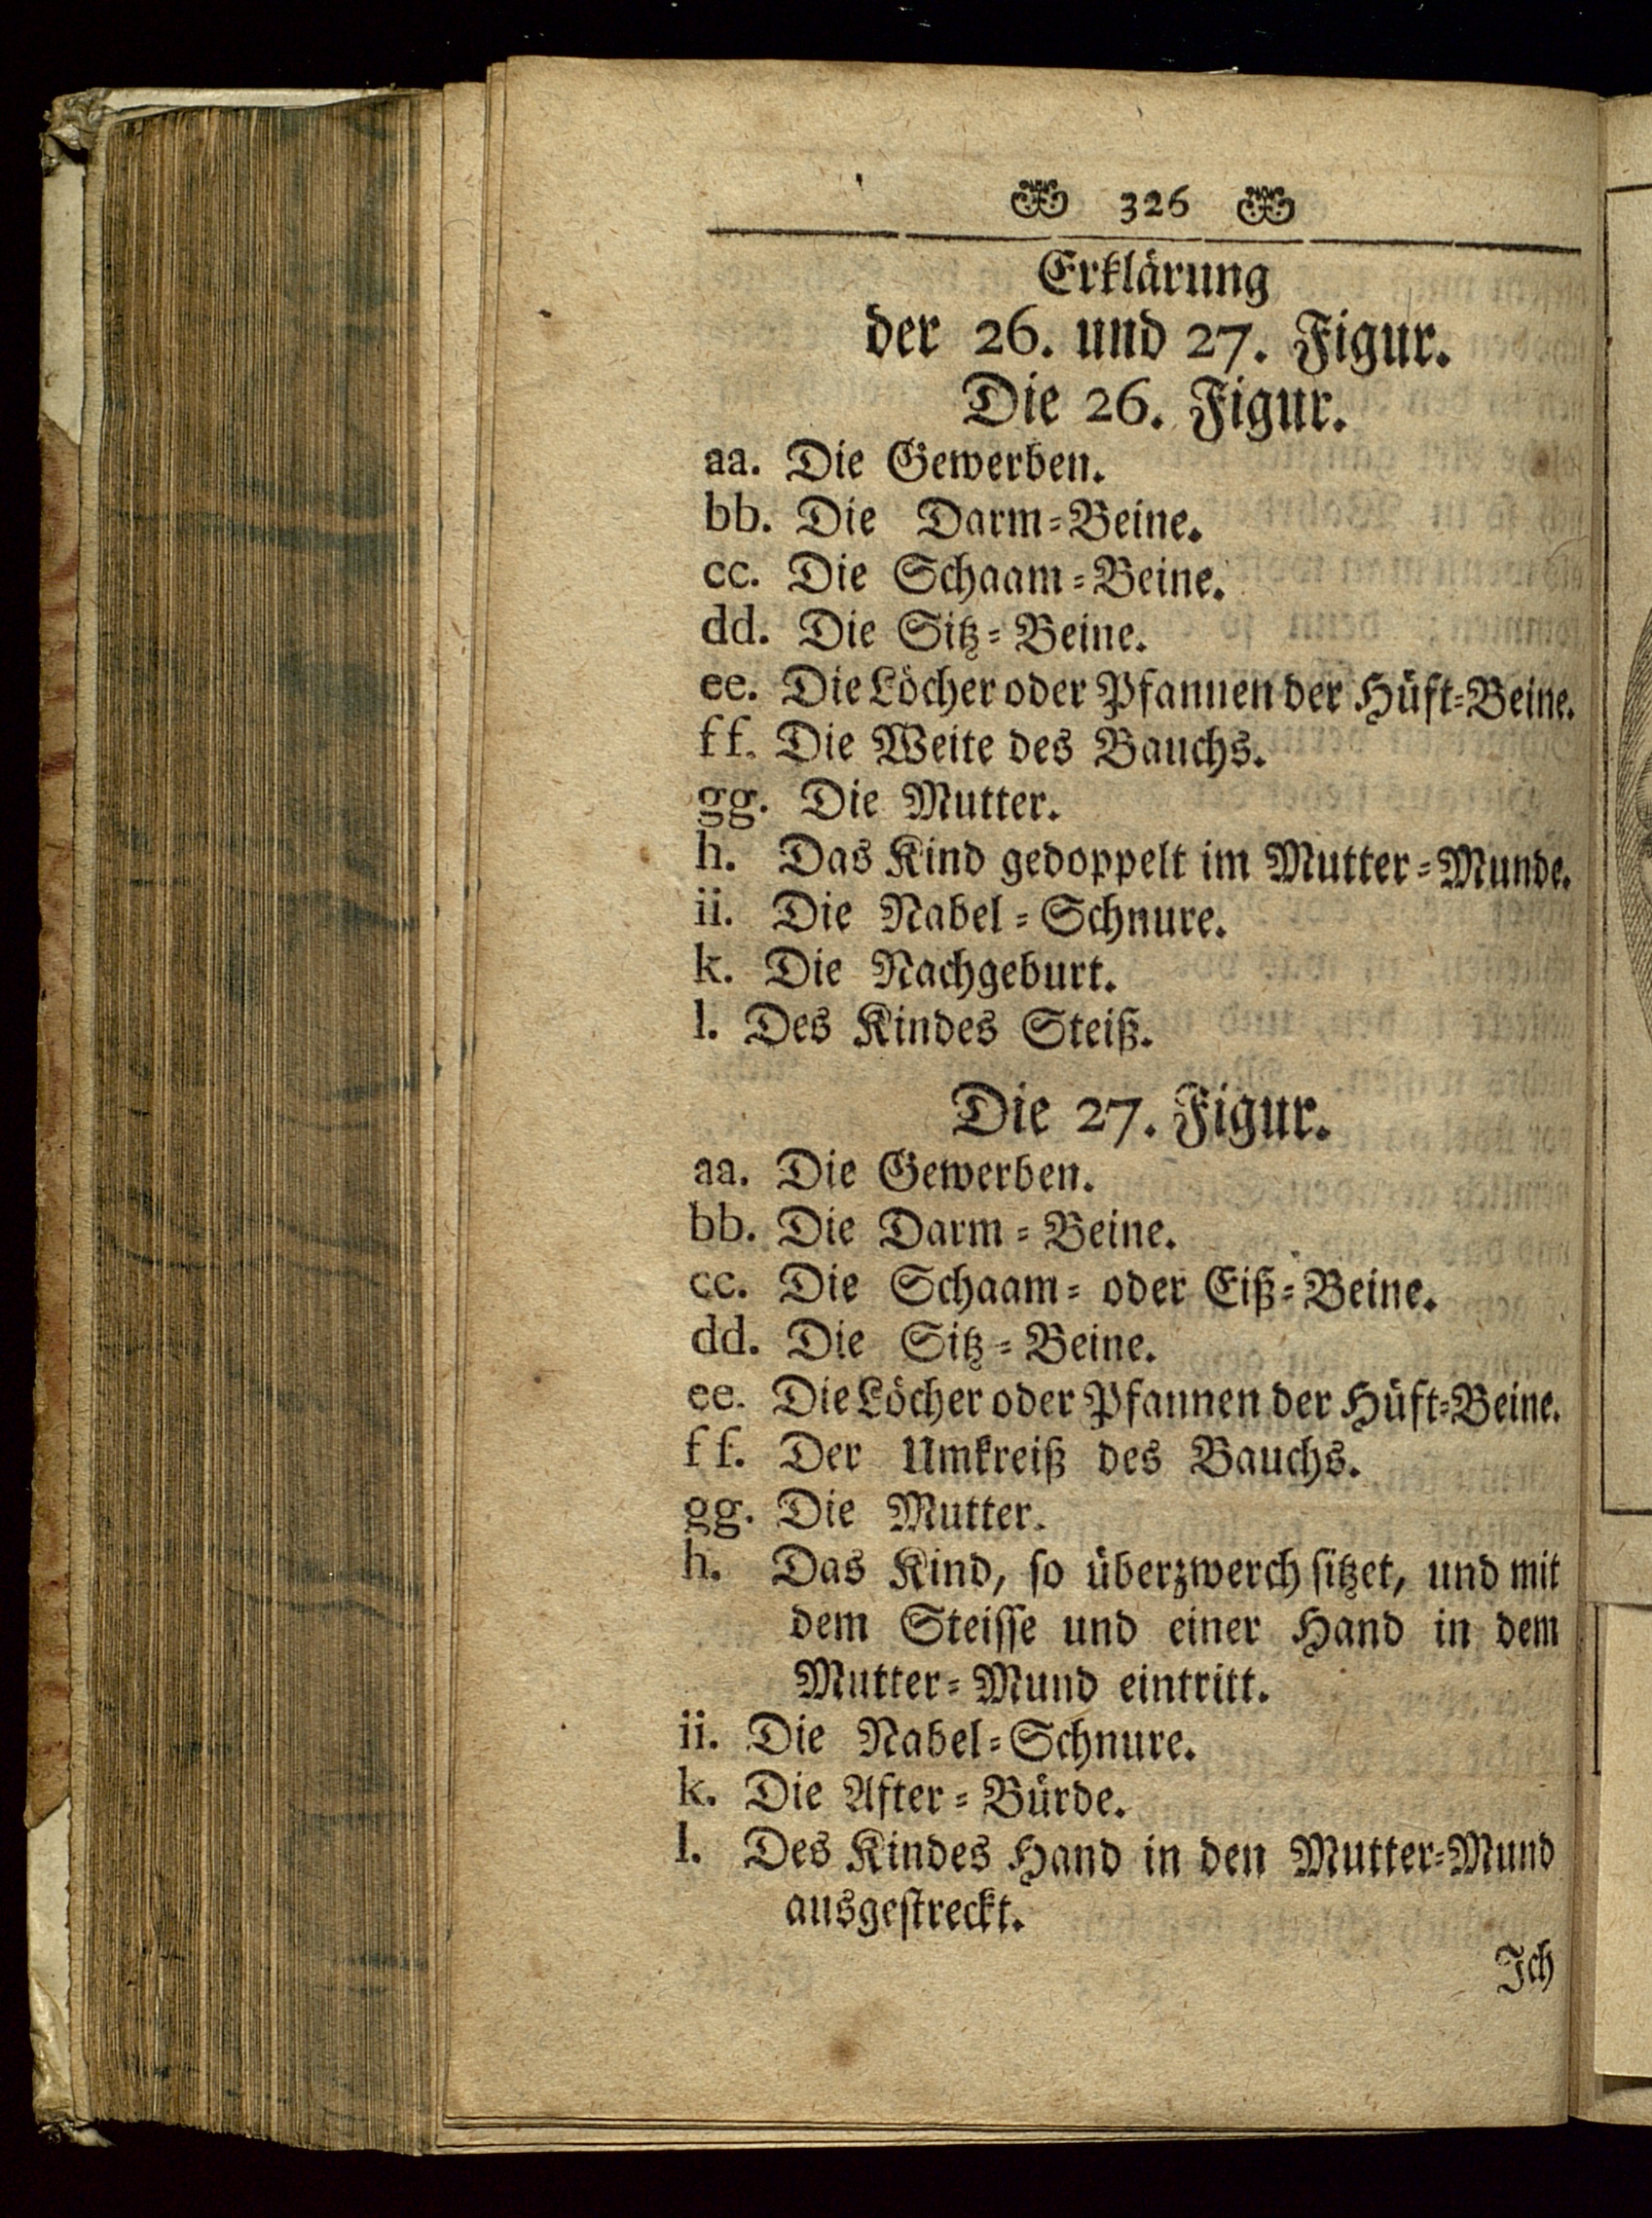 326
Erklärung
der 26. und 27. Figur.
Die 26. Figur.
aa. Die Gewerben.
bb. Die Darm-Beine.
cc. Die Schaam-Beine.
dd. Die Sitz-Beine.
ee. Die Löcher oder Pfannen der Hüft-Beine.
ff. Die Weite des Bauchs.
gg. Die Mutter.
h. Das Kind gedoppelt im Mutter-Munde.
ii. Die Nabel-Schnure.
k. Die Nachgeburt.
l. Des Kindes Steiß.
Die 27. Figur.
aa. Die Gewerben.
bb. Die Darm-Beine.
cc. Die Schaam- oder Eiß-Beine.
dd. Die Sitz-Beine.
ee. Die Löcher oder Pfannen der Hüft-Beine.
ff. Der Umkreiß des Bauchs.
gg. Die Mutter.
h. Das Kind, so überzwerch sitzet, und mit
dem Steisse und einer Hand in dem
Mutter-Mund eintritt.
ii. Die Nabel-Schnure.
k. Die After-Bürde.
l. Des Kindes Hand in den Mutter-Mund
ausgestreckt.
Ich